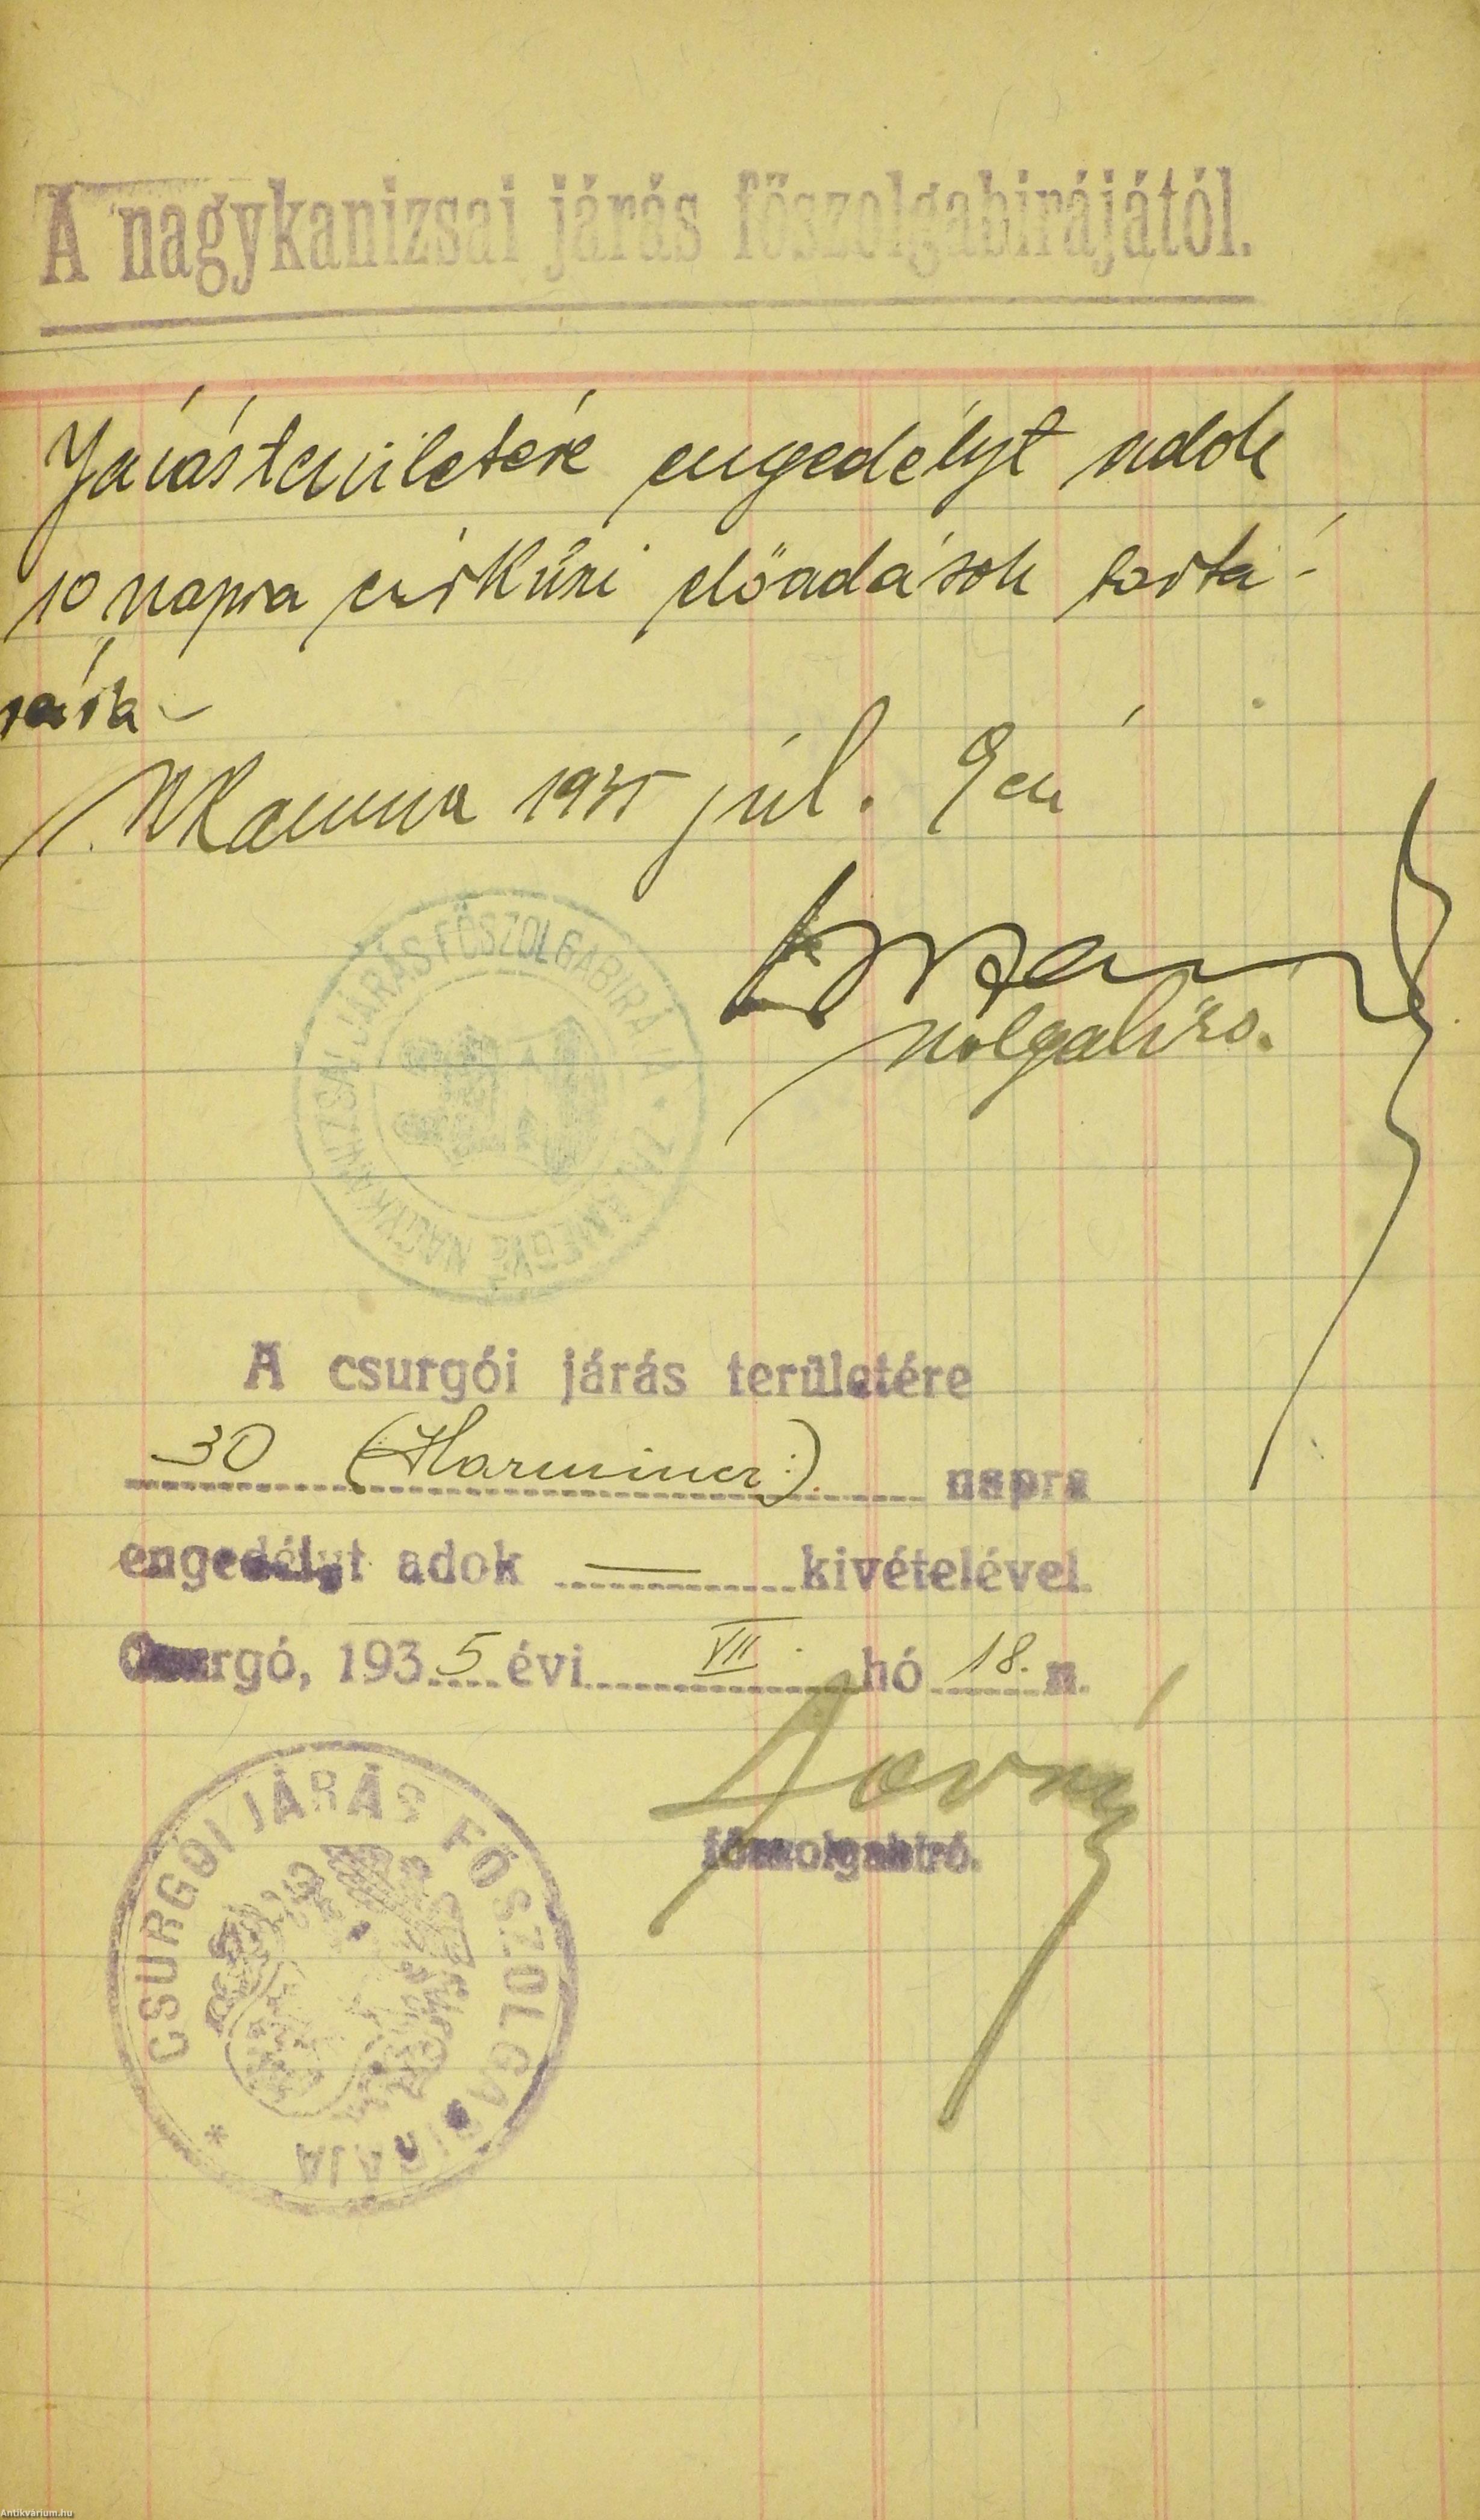 A nagykanizsai járás főszolgabirájától.
Járásterületére engedélyt adok
10 napra cirkuszi előadások tartá-
sára
Nkanizsa 1935 júl. 9 én
NAGYKANIZSAI JÁRÁS FŐSZOLGABIRÁJA • ZALAMEGYE
szolgabiró.
A csurgói járás területére
30 (:Harminc:) napra
engedélyt adok — kivételével.
Csurgó, 1935 évi VII hó 18. n.
főszolgabiró.
CSURGÓI JÁRÁS FŐSZOLGABIRÁJA *
Antikvárium.hu